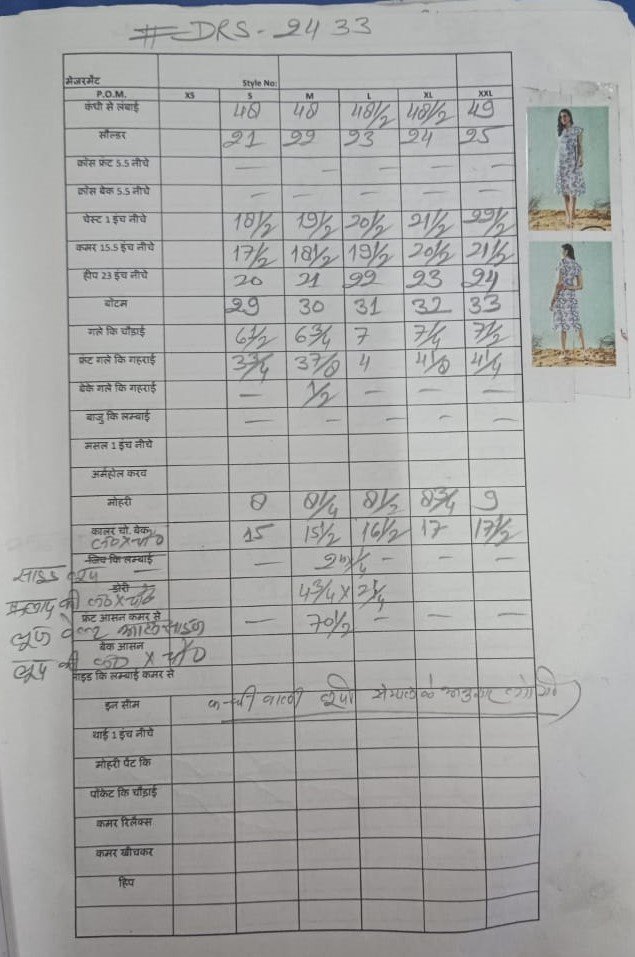 # DRS-2433
मेजरमेंट Style No:
P.O.M. XS S M L XL XXL
कंधी से लंबाई 48 48 48 1/2 48 1/2 49
सोल्डर 21 22 23 24 25
क्रोस फ्रंट 5.5 नीचे — — — — —
क्रोस बेक 5.5 नीचे — — — — —
चेस्ट 1 इंच नीचे 18 1/2 19 1/2 20 1/2 21 1/2 22 1/2
कमर 15.5 इंच नीचे 17 1/2 18 1/2 19 1/2 20 1/2 21 1/2
हीप 23 इंच नीचे 20 21 22 23 24
बोटम 29 30 31 32 33
गले कि चौड़ाई 6 1/2 6 3/4 7 7 1/4 7 1/2
फ्रंट गले कि गहराई 3 3/4 3 7/8 4 4 1/8 4 1/4
बेके गले कि गहराई — 1/2 — — —
बाजु कि लम्बाई — — — — —
मसल 1 इंच नीचे
अर्महोल करव
मोहरी 8 8 1/4 8 1/2 8 3/4 9
कालर चौ. बेक 15 15 1/2 16 1/2 17 17 1/2
ल० X चौ०
जिप कि लम्बाई — — — —
साइड
डोरी 4 3/4 X 2 1/4
की ल० X चौ०
फ्रंट आसन कमर से — 70 1/2 — — —
लूप
बेक आसन
लूप की ल० X चौ०
साइड कि लम्बाई कमर से
इन सीम
थाई 1 इंच नीचे
मोहरी पेंट कि
पॉकेट कि चौड़ाई
कमर रिलेक्स
कमर खीचकर
हिप